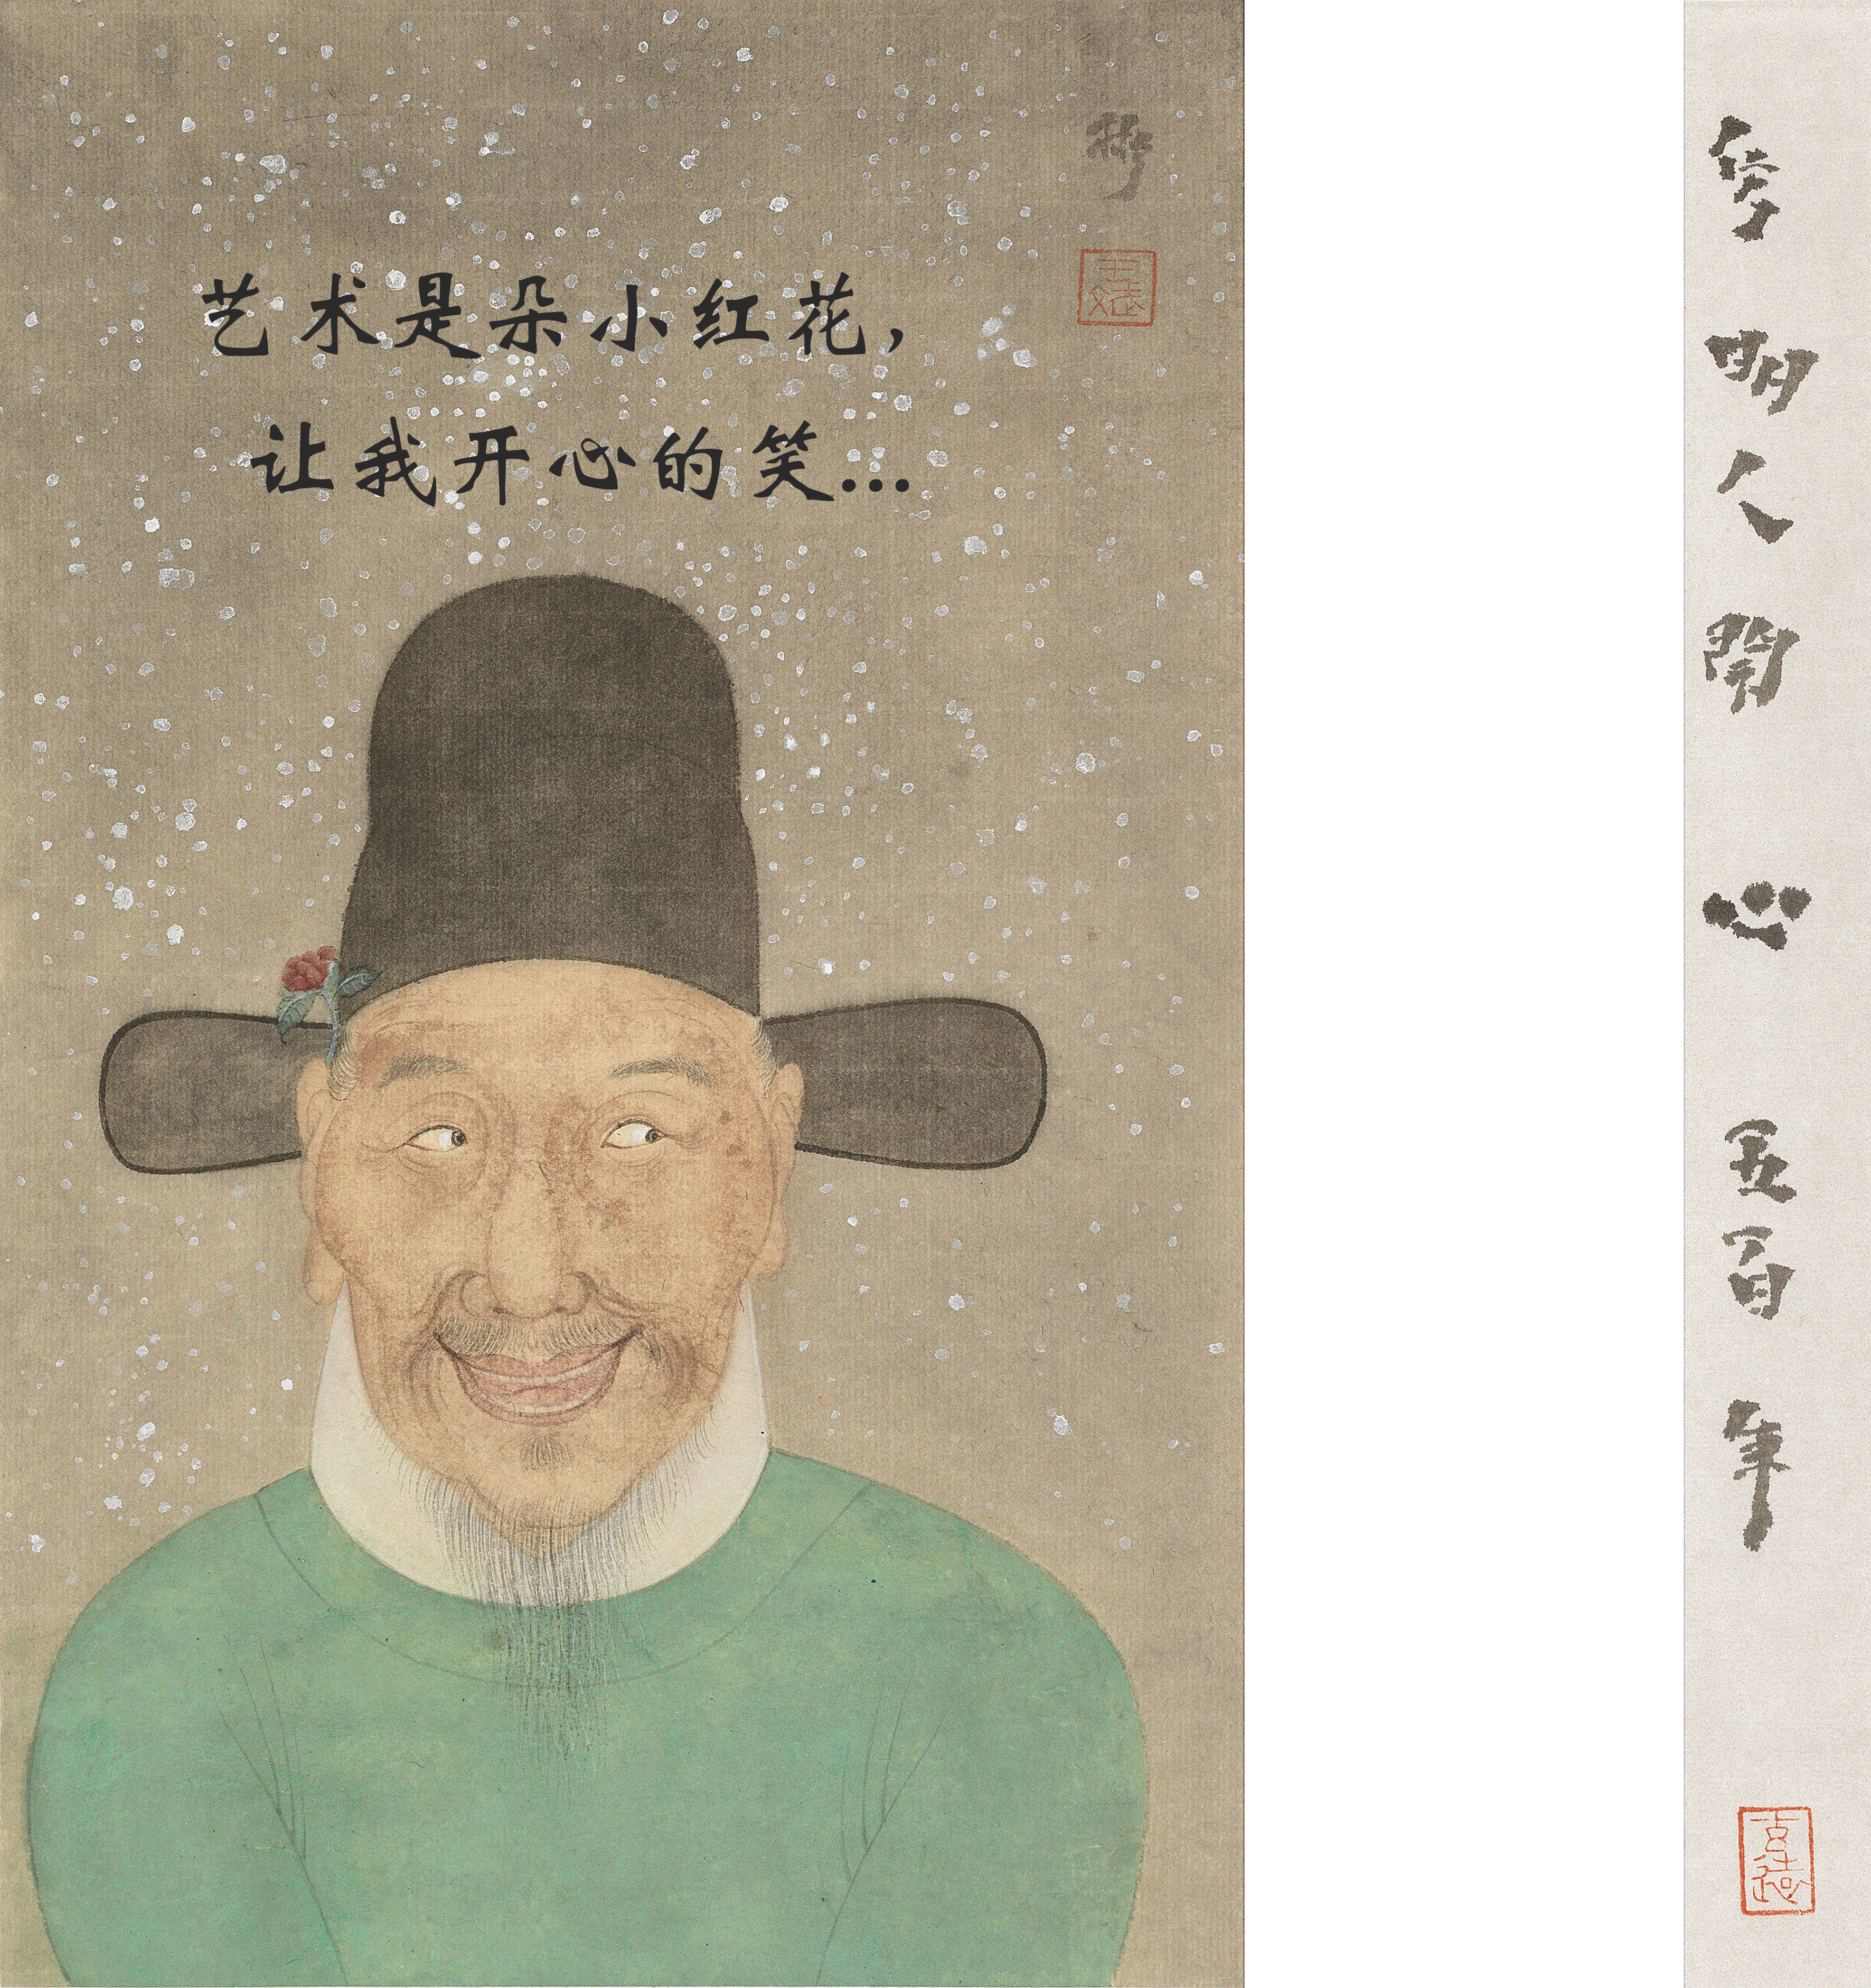 艺术是朵小红花，
让我开心的笑...
明人開心五百年